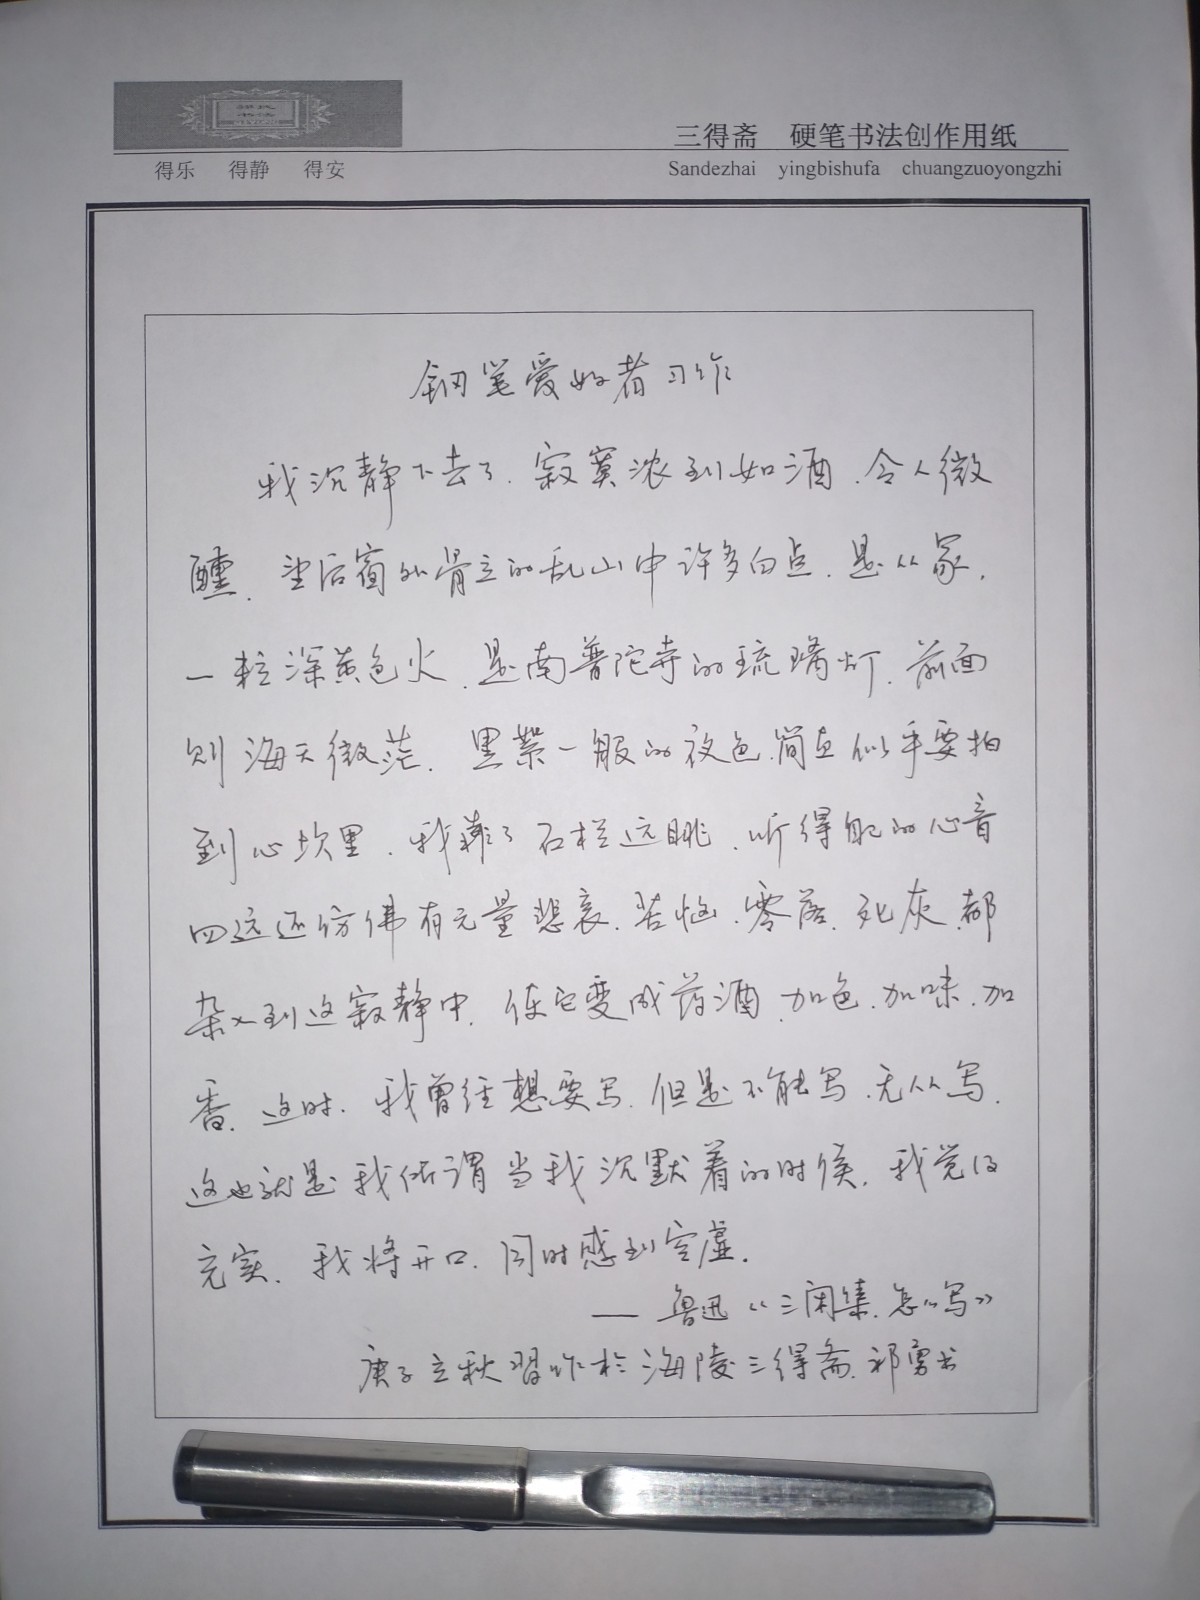 三得斋 硬笔书法创作用纸
得乐 得静 得安
Sandezhai yingbishufa chuangzuoyongzhi
钢笔爱好者习作
我沉静下去了.寂寞浓到如酒.令人微
醺.望后窗外骨立的乱山中许多白点.是丛冢.
一粒深黄色火.是南普陀寺的琉璃灯.前面
则海天微茫.黑絮一般的夜色.简直似乎要扑
到心坎里.我靠了石栏远眺.听得自己的心音
四远还仿佛有无量悲哀.苦恼.零落.死灰.都
杂入到这寂静中.使它变成药酒.加色.加味.加
香.这时.我曾经想要写.但是不能写.无从写.
这也就是我所谓当我沉默着的时候.我觉得
充实.我将开口.同时感到空虚.
—— 鲁迅《三闲集.怎么写》
庚子立秋習作於海陵三得斋.祁勇书